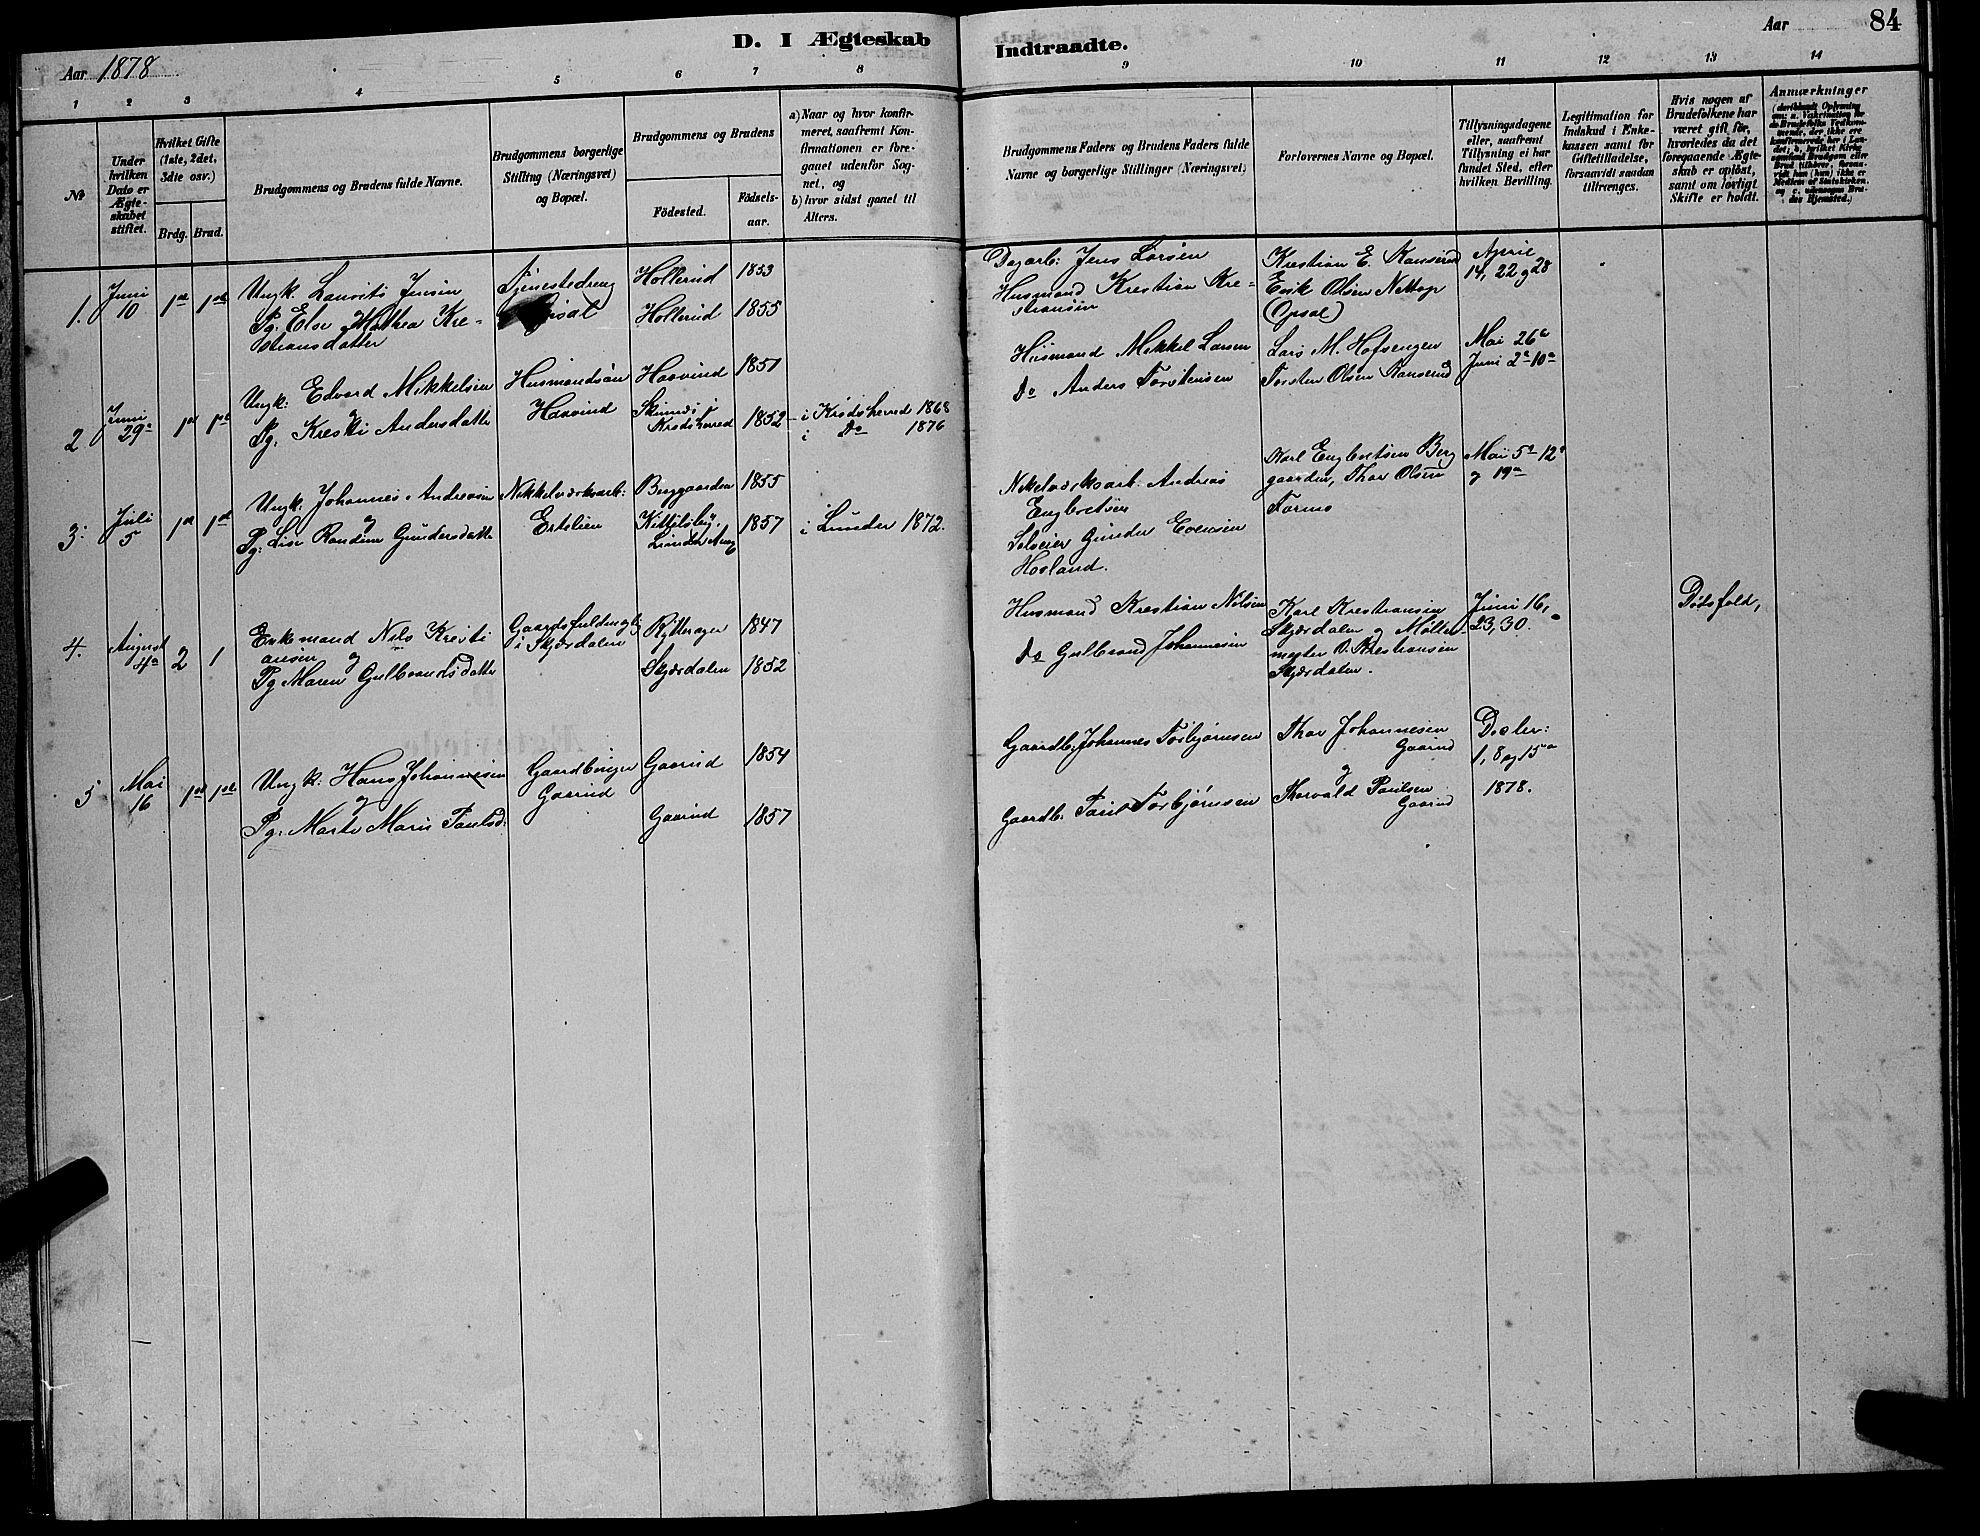 D. I Ægteskab Indtraadte.
Aar 1878
Aar 84
1 2 3 4 5 6 7 8 9 10 11 12 13 14
№
Under hvilken Dato er Ægteskabet stiftet.
Hvilket Gifte (1ste, 2det, 3die osv.)
Brdg. Brud.
Brudgommens og Brudens fulde Navne.
Brudgommens borgerlige Stilling (Næringsvei) og Bopæl.
Brudgommens og Brudens
Fødested.
Fødselsaar.
a) Naar og hvor konfirmeret, saafremt Konfirmationen er foregaaet udenfor Sognet, og
b) hvor sidst gaaet til Alters.
Brudgommens Faders og Brudens Faders fulde Navne og borgerlige Stillinger (Næringsvei)
Forlovernes Navne og Bopæl.
Tillysningsdagene eller, saafremt Tillysning ei har fundet Sted, efter hvilken Bevilling.
Legitimation for Indskud i Enkekassen samt for Giftetilladelse, forsaavidt saadan tiltrænges.
Hvis nogen af Brudefolkene har været gift før, hvorledes da det foregaaende Ægteskab er opløst, samt om lovligt Skifte er holdt.
Anmærkninger
1. Juni 10 1ste 1ste
Ungk. Lauvits Jensen
Pg. Else Mathea Kre-
stiansdatter
Tjenestedreng
Hollerud 1853
Hollerud 1855
Dagarb: Jens Larsen
Husmand Krestian Kre-
stiansen
Krestian E. Ramserud
Erik Olsen Nettop
(Opsal)
April
14, 22 og 28
2 Juni 29de 1ste 1ste
Ungk: Edvard Mikkelsen
og
Pg. Kresti Andersdatter
Husmandsøn
Haavind
Haavind 1851
Skinnes i
Krødsherred 1852
i Krødsherred 1868
i Do 1876
Husmand Mikkel Larsen
Do Anders Torstensen
Lars M. Hofsengen
Torsten Olsen Ramserud
Mai 26de
Juni 2de 10de
3: Juli 5 1ste 1ste
Ungk. Johannes Andresen
og
Pg: Lise Randine Gundersdatter
Nikkelværksarb:
Ertelien
Berggaarden 1855
Kittelsby,
Lunder Anx 1857
i Lunder 1872.
Nikelværksarb. Andreas
Engbretsen
Selveier Gunder Evensen
Hovland.
Karl Engbretsen Berg
gaarden, Thor Olsen
Formo
Mai 5te 12te
og 19de
4. August 4de 2 1
Enkemand Nils Kresti
ansen
og
Pg Maren Gulbrandsdatter
i Skjærdalen
Rytterager 1847
Skjærdalen 1852
Husmand Krestian Nilsen
Do Gulbrand Johannesen
Karl Krestiansen
Skjærdalen og Møller-
mester O. Krestiansen
Skjærdalen.
Juni 16,
23, 30.
Dødsfald,
5 Mai 16 1ste 1ste
Ungk. Hans Johannesen
og
Pg. Marte Marie Paulsd:
Gaardbruger
Gaarud
Gaarud 1854
Gaarud 1857
Gaardb. Johannes Torbjørnsen
Gaardb. Paul Torbjørnsen
Thor Johannesen
Gaarud
og
Thorvald Paulsen
Gaarud
Decbr:
1, 8 og 15de
1878.